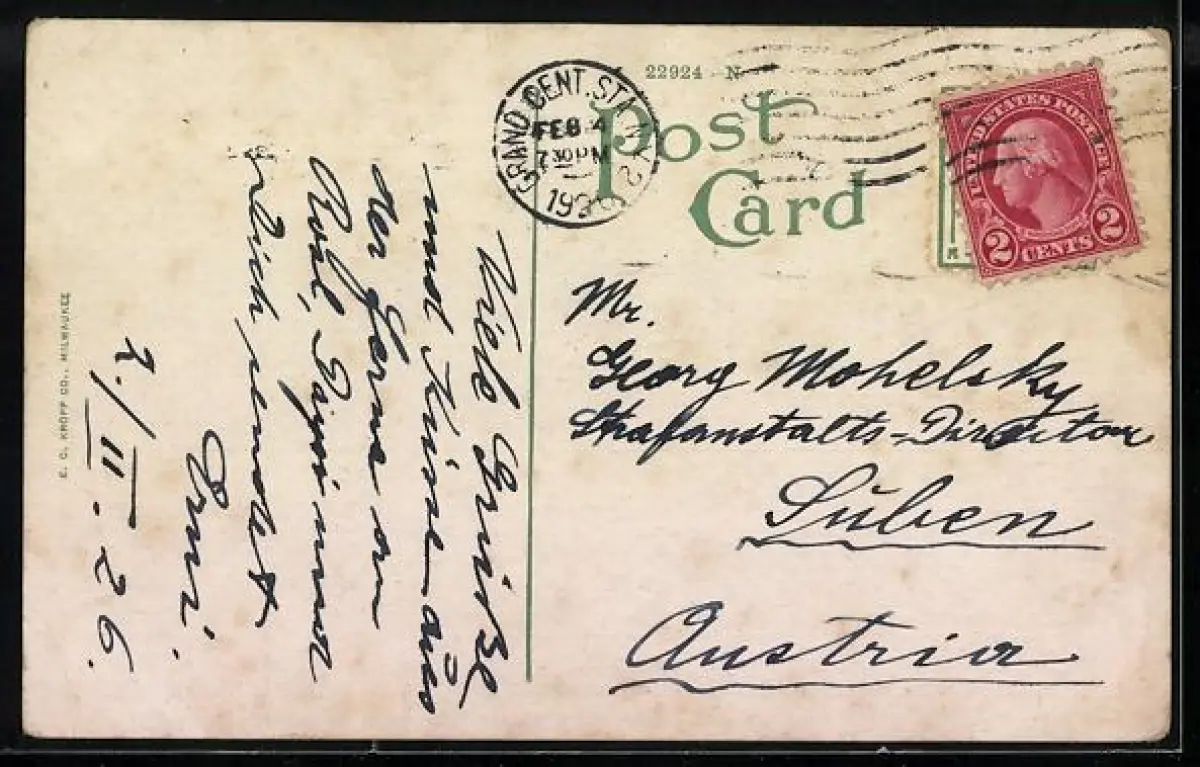 22924 - N
Post
Card
GRAND CENT. STA. N.Y.
FEB 4
7 30 PM
1926
UNITED STATES POSTAGE
2 CENTS 2
Mr.
Georg Mohelsky
Strafanstalts-Direktor
Suben
Austria
Viele Grüße
und Küsse aus
der Ferne an
2./II. 26.
E. C. KROPP CO., MILWAUKEE